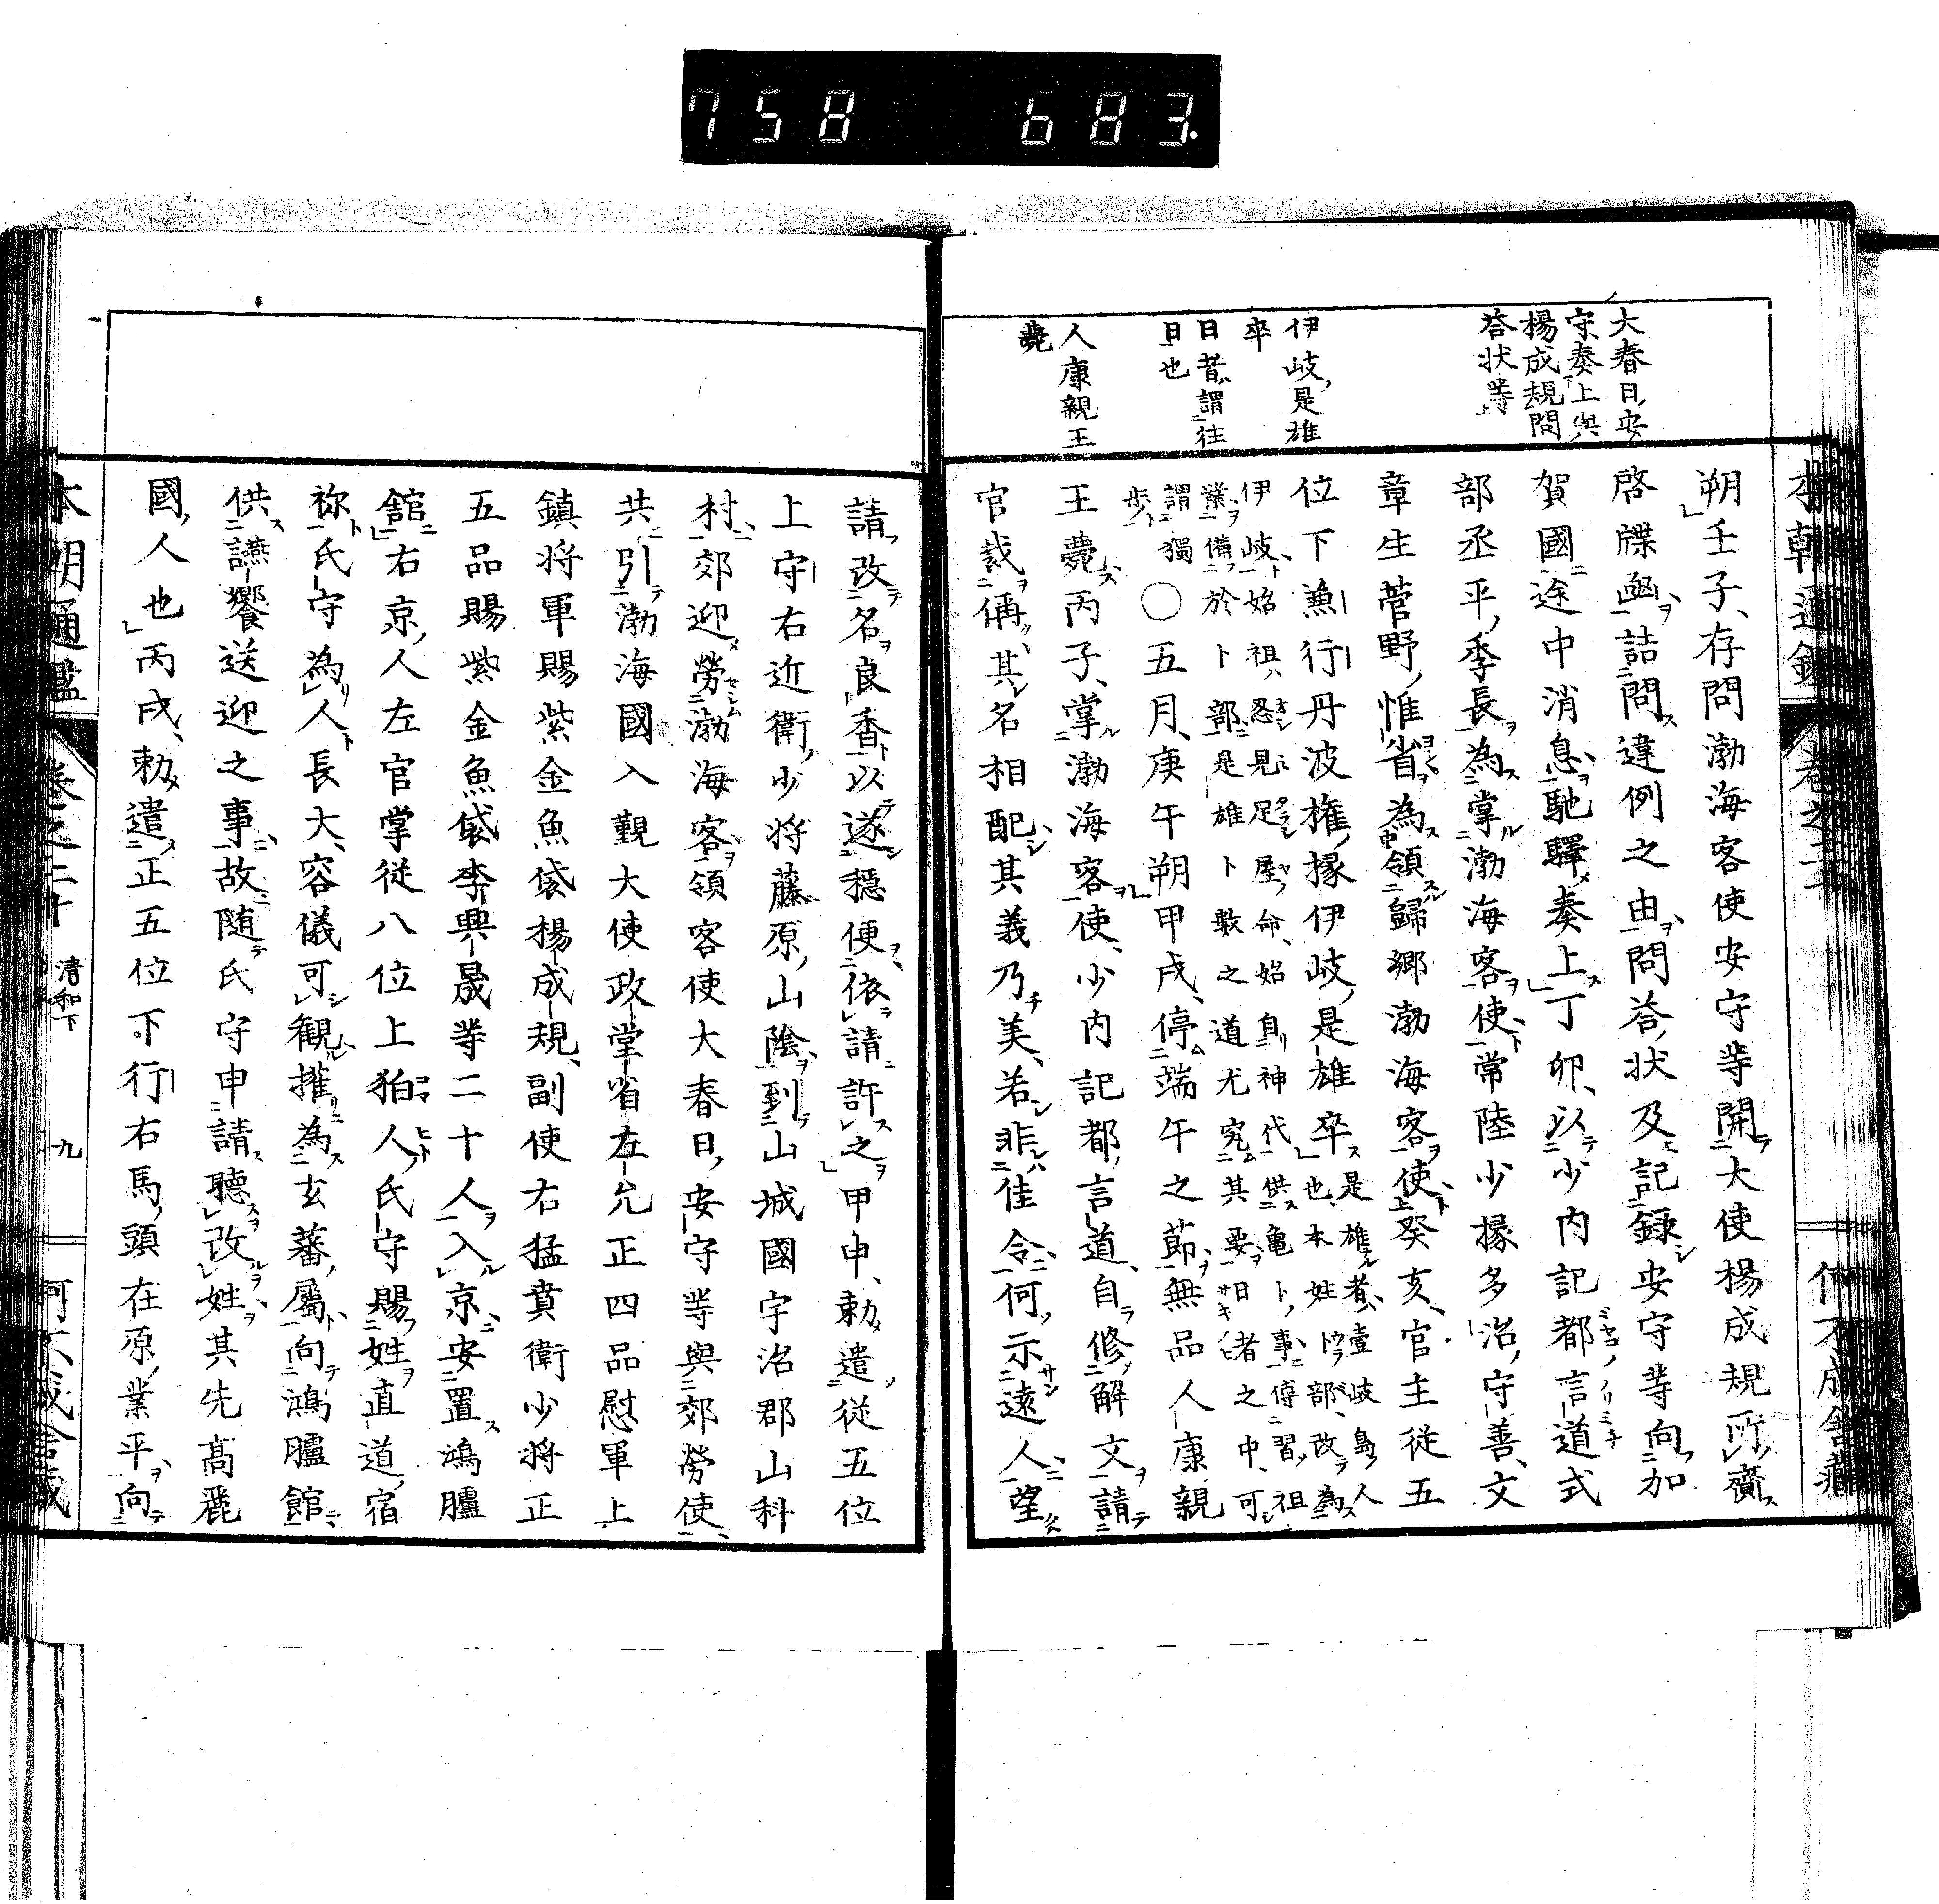 758 683.
大春日安
守奏上與
楊成規問
荅状等
伊岐是雄
卒
日昔謂往
日也
人康親王
薨
朔壬子存問渤海客使安守等開大使楊成規所齎
啓牒凾詰問違例之由問荅状及記録安守等向加
賀國途中消息馳驛奏上丁卯以少内記都言道式
部丞平季長為掌渤海客使常陸少掾多治守善文
章生菅野惟省為領歸郷渤海客使癸亥官主従五
位下兼行丹波權掾伊岐是雄卒是雄者壹岐島人
也本姓卜部改為
伊岐始祖忍見足屋命始自神代供亀卜事傳習祖
業備於卜部是雄卜數之道尤究其要日者之中可
謂獨
歩〇五月庚午朔甲戌停端午之節無品人康親
王薨丙子掌渤海客使少内記都言道自修解文請
官裁偁其名相配其義乃美若非佳令何示遠人望
本朝通鑑 卷之二十 清和下 九
請改名良香以遂穏便依請許之甲申勅遣従五位
上守右近衛少将藤原山陰到山城國宇治郡山科
村郊迎勞渤海客領客使大春日安守等與郊勞使
共引渤海國入覲大使政堂省左允正四品慰軍上
鎮将軍賜紫金魚袋楊成規副使右猛賁衛少将正
五品賜紫金魚袋李興晟等二十人入京安置鴻臚
舘右京人左官掌従八位上狛人氏守賜姓直道宿
祢氏守為人長大容儀可觀擢為玄蕃属向鴻臚館
供讌饗送迎之事故随氏守申請聽改姓其先高麗
國人也丙戌勅遣正五位下行右馬頭在原業平向